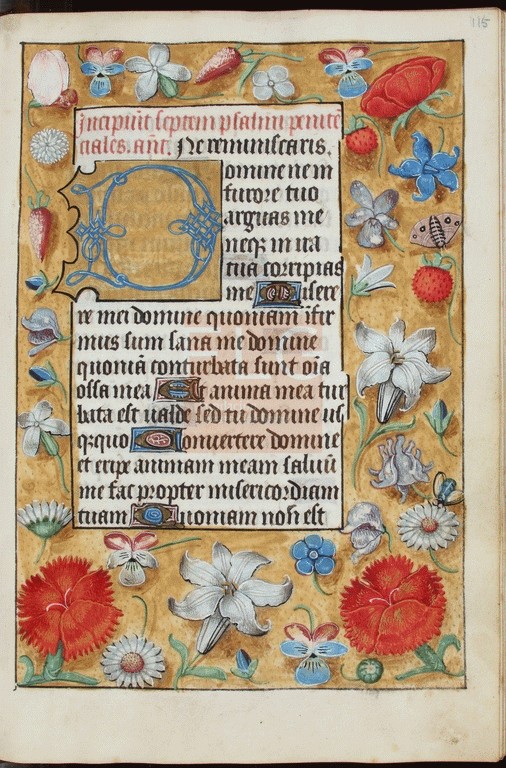 115
Incipiũt septem psalmi penitẽ
ciales. añt. Ne reminiscaris.
Domine ne in
furore tuo
arguas me
neqꝫ in ira
tua corripias
me Misere
re mei domine quoniam ifir
mus sum sana me domine
quoniã conturbata sunt oĩa
ossa mea Et anima mea tur
bata est valde sed tu domine us
qꝫquo Convertere domine
et eripe animam meam saluũ
me fac propter misericordiam
tuam Quoniam non est